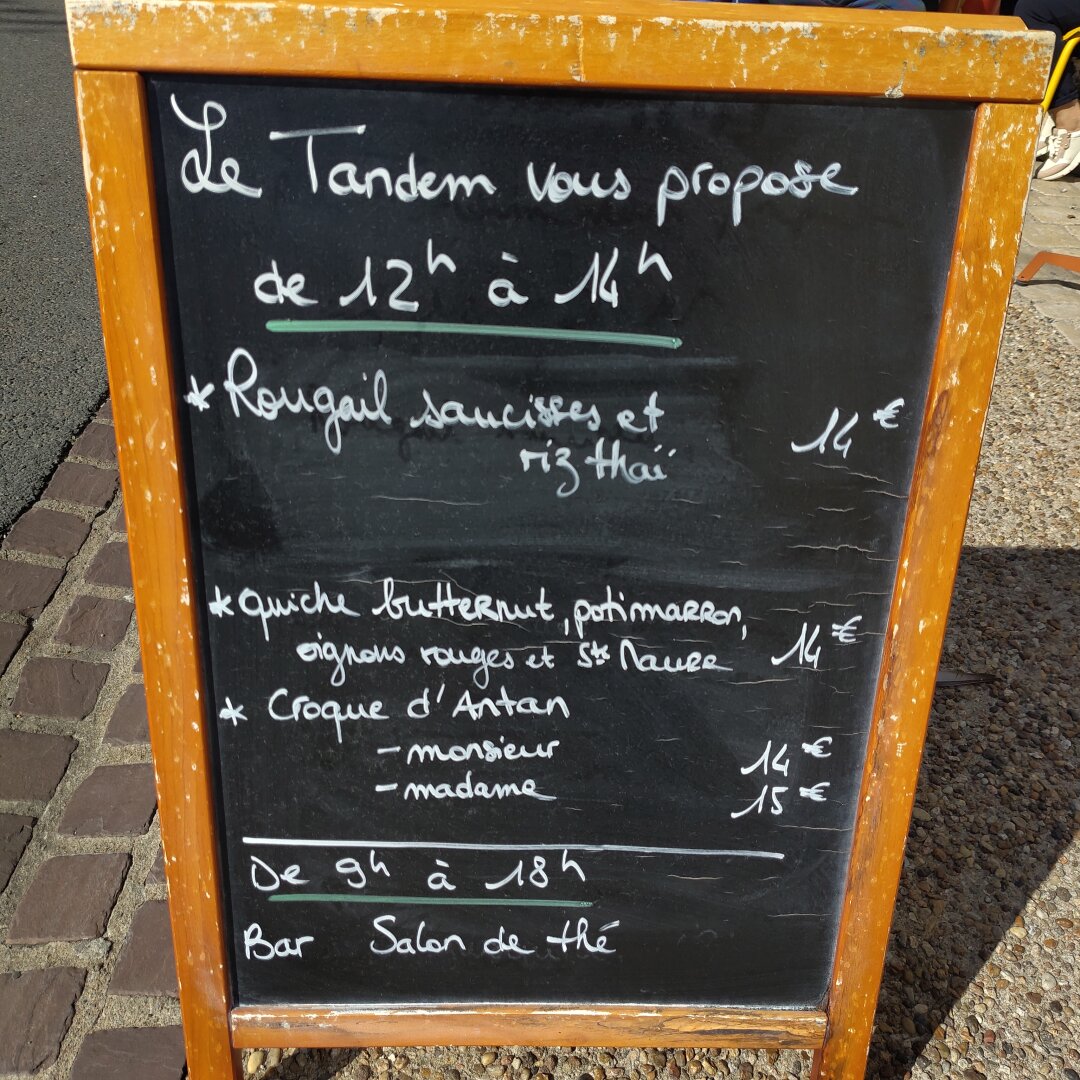 Le Tandem vous propose
de 12h à 14h
* Rougail saucisses et
riz thaï 14€
* Quiche butternut, potimarron,
oignons rouges et Ste Maure 14€
* Croque d'Antan
- monsieur 14€
- madame 15€
De 9h à 18h
Bar Salon de thé